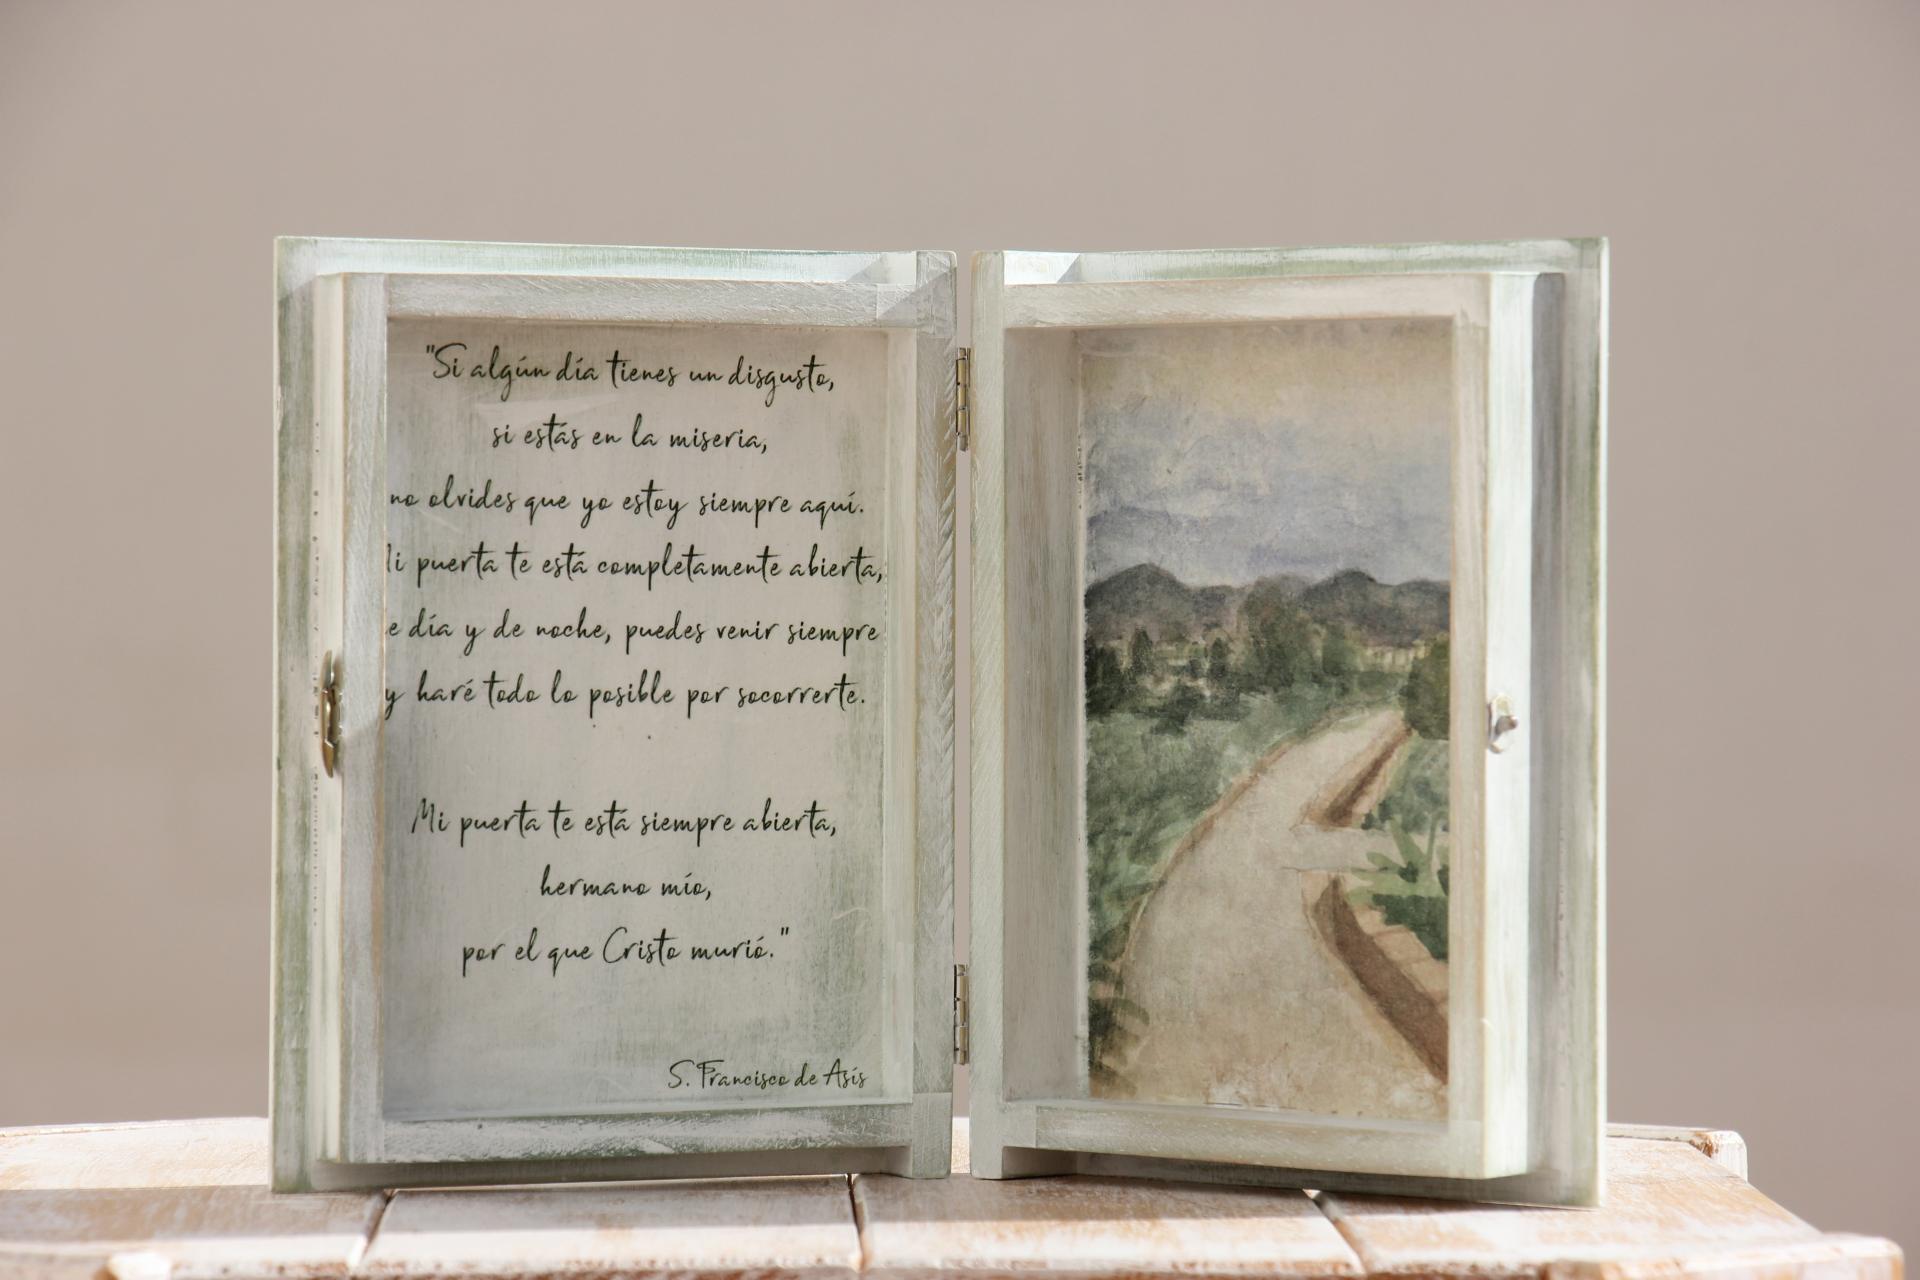 "Si algún día tienes un disgusto,
si estás en la miseria,
no olvides que yo estoy siempre aquí.
puerta te está completamente abierta,
día y de noche, puedes venir siempre
y haré todo lo posible por socorrerte.
Mi puerta te está siempre abierta,
hermano mío,
por el que Cristo murió."
S. Francisco de Asís